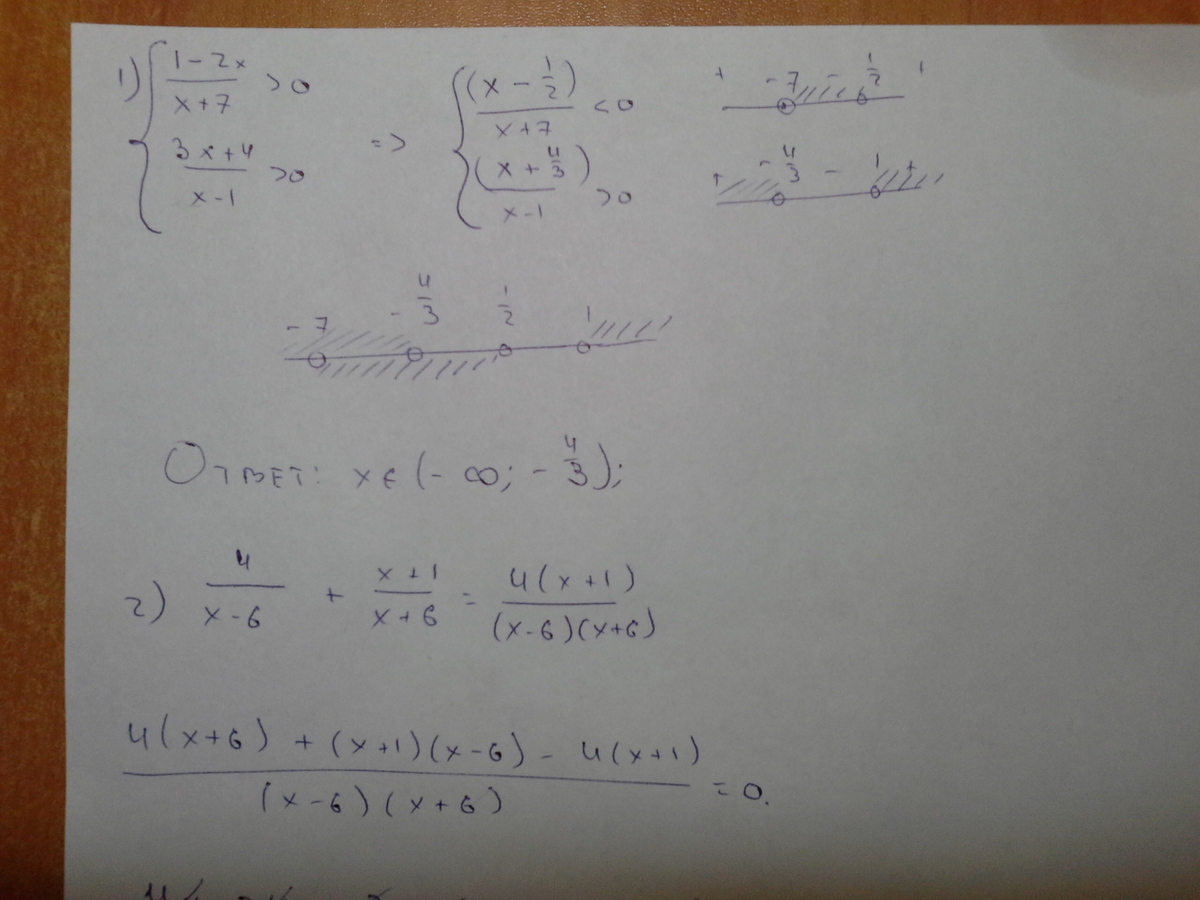 1) { (1-2x)/(x+7) > 0 => { (x - 1/2)/(x+7) < 0 + -7 - 1/2 +
{ (3x+4)/(x-1) > 0 { (x + 4/3)/(x-1) > 0 + -4/3 - 1 +
-7 -4/3 1/2 1
Ответ: x ∈ (-∞; -4/3);
2) 4/(x-6) + (x+1)/(x+6) = 4(x+1)/((x-6)(x+6))
(4(x+6) + (x+1)(x-6) - 4(x+1))/((x-6)(x+6)) = 0.